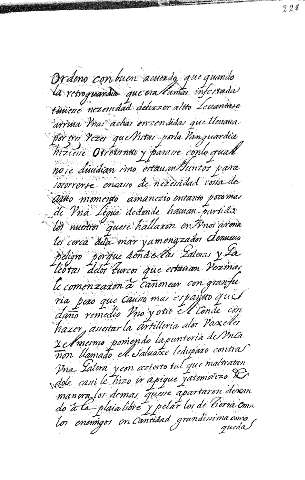 228
Ordeno con buen acuerdo que quando
la retroguardia que era la mas infestada
tuviese nezesidad de hazer alto Levantase
arriva Unas achas enzendidas que llaman
por tres vezes que Vistas por la Vanguardia
hiziese otro tanto y parase con lo qual
no se dividian sino estavan Juntos para
socorrerse en caso de nezesidad cosa de
mucho momento amanezio en tanto poco mas
de Una legua de donde havian partido
los nuestros que se hallaron en Unos arenales
cerca de la mar y amenazados de nuevo
peligro porque donde las Galeras y Ga
leotas de los turcos que estavan Vezinas
le comenzaron a Cañonear con gran fu
ria pero que Causo mas espanto que
daño remedio Uno y otro el Conde con
hazer asestar la artilleria a los Vaxeles
y el mismo poniendo la punteria de Un Ca
ñon llamado el Salvaxe le disparo contra
Una Galera y con acierto tal que maltratan
dole casi le hizo ir a pique y atemorizo de
manera los demas que se apartaron dexan
do a la plaia libre y pelar los de tierra como
los enemigos en Cantidad grandissima como
queda